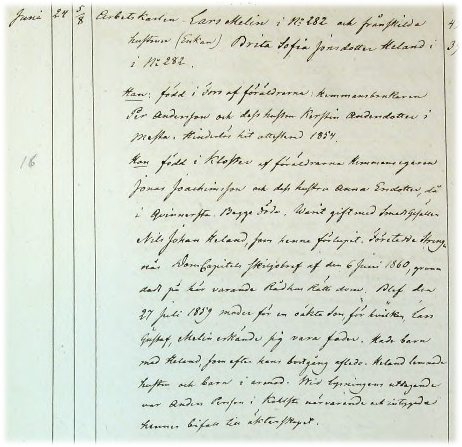 Juni 24 5/8 Arbetskarlen Lars Melin i No 282 och frånskilda 4.
hustrun (Enkan) Brita Sofia Jonsdotter Heland i 3.
i No 282.
Han: född i Tors af föräldrarne: Hemmansbrukaren
Per Andersson och dess hustru Kerstin Andersdotter i
Hinderlös hit attesterad 1854.
16 Hon född i Kloster af föräldrarna Hemmansegaren
Jonas Joachimsson och dess hustru Anna Ersdotter, då
i Qvinnersta. Begge döda. Warit gift med Smedgesällen
Nils Johan Heland, som henne förlupit. Företedde Streng-
näs DomCapitels skiljobref af den 6 Juni 1860, grun-
dadt på här varande Rådhus Rätts dom. Blef den
27 Juli 1859 moder för en oäkta son, för hvilken, Lars
Gustaf, Melin erkände sig vara fader. Hade barn
med Heland, som efter hans bortgång afledo. Heland lemnade
hustru och barn i armod. Wid Lysningens uttagande
var Anders Persson i närvarande och intygade
hennes bifall till äktenskapet.